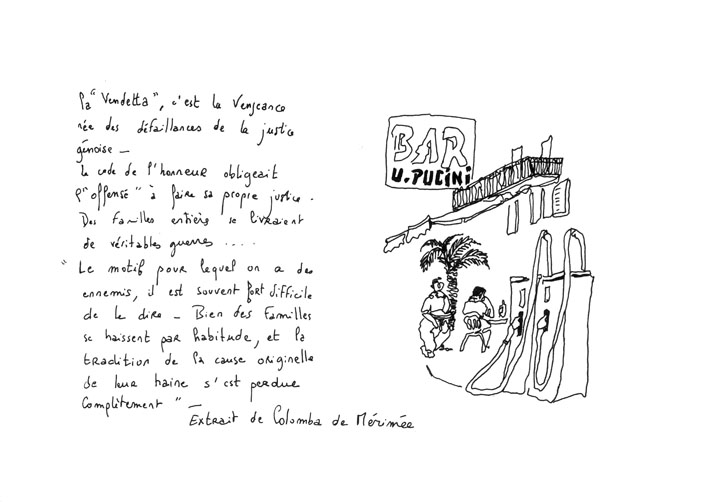 la "Vendetta", c'est la Vengeance
née des défaillances de la justice
génoise _
Le code de l'honneur obligeait
l'"offensé" à faire sa propre justice.
Des familles entières se livraient
de véritables guerres ....
"Le motif pour lequel on a des
ennemis, il est souvent fort difficile
de le dire _ Bien des familles
se haïssent par habitude, et la
tradition de la cause originelle
de leur haine s'est perdue
complètement" _
Extrait de Colomba de Mérimée
BAR
U. PUCINI